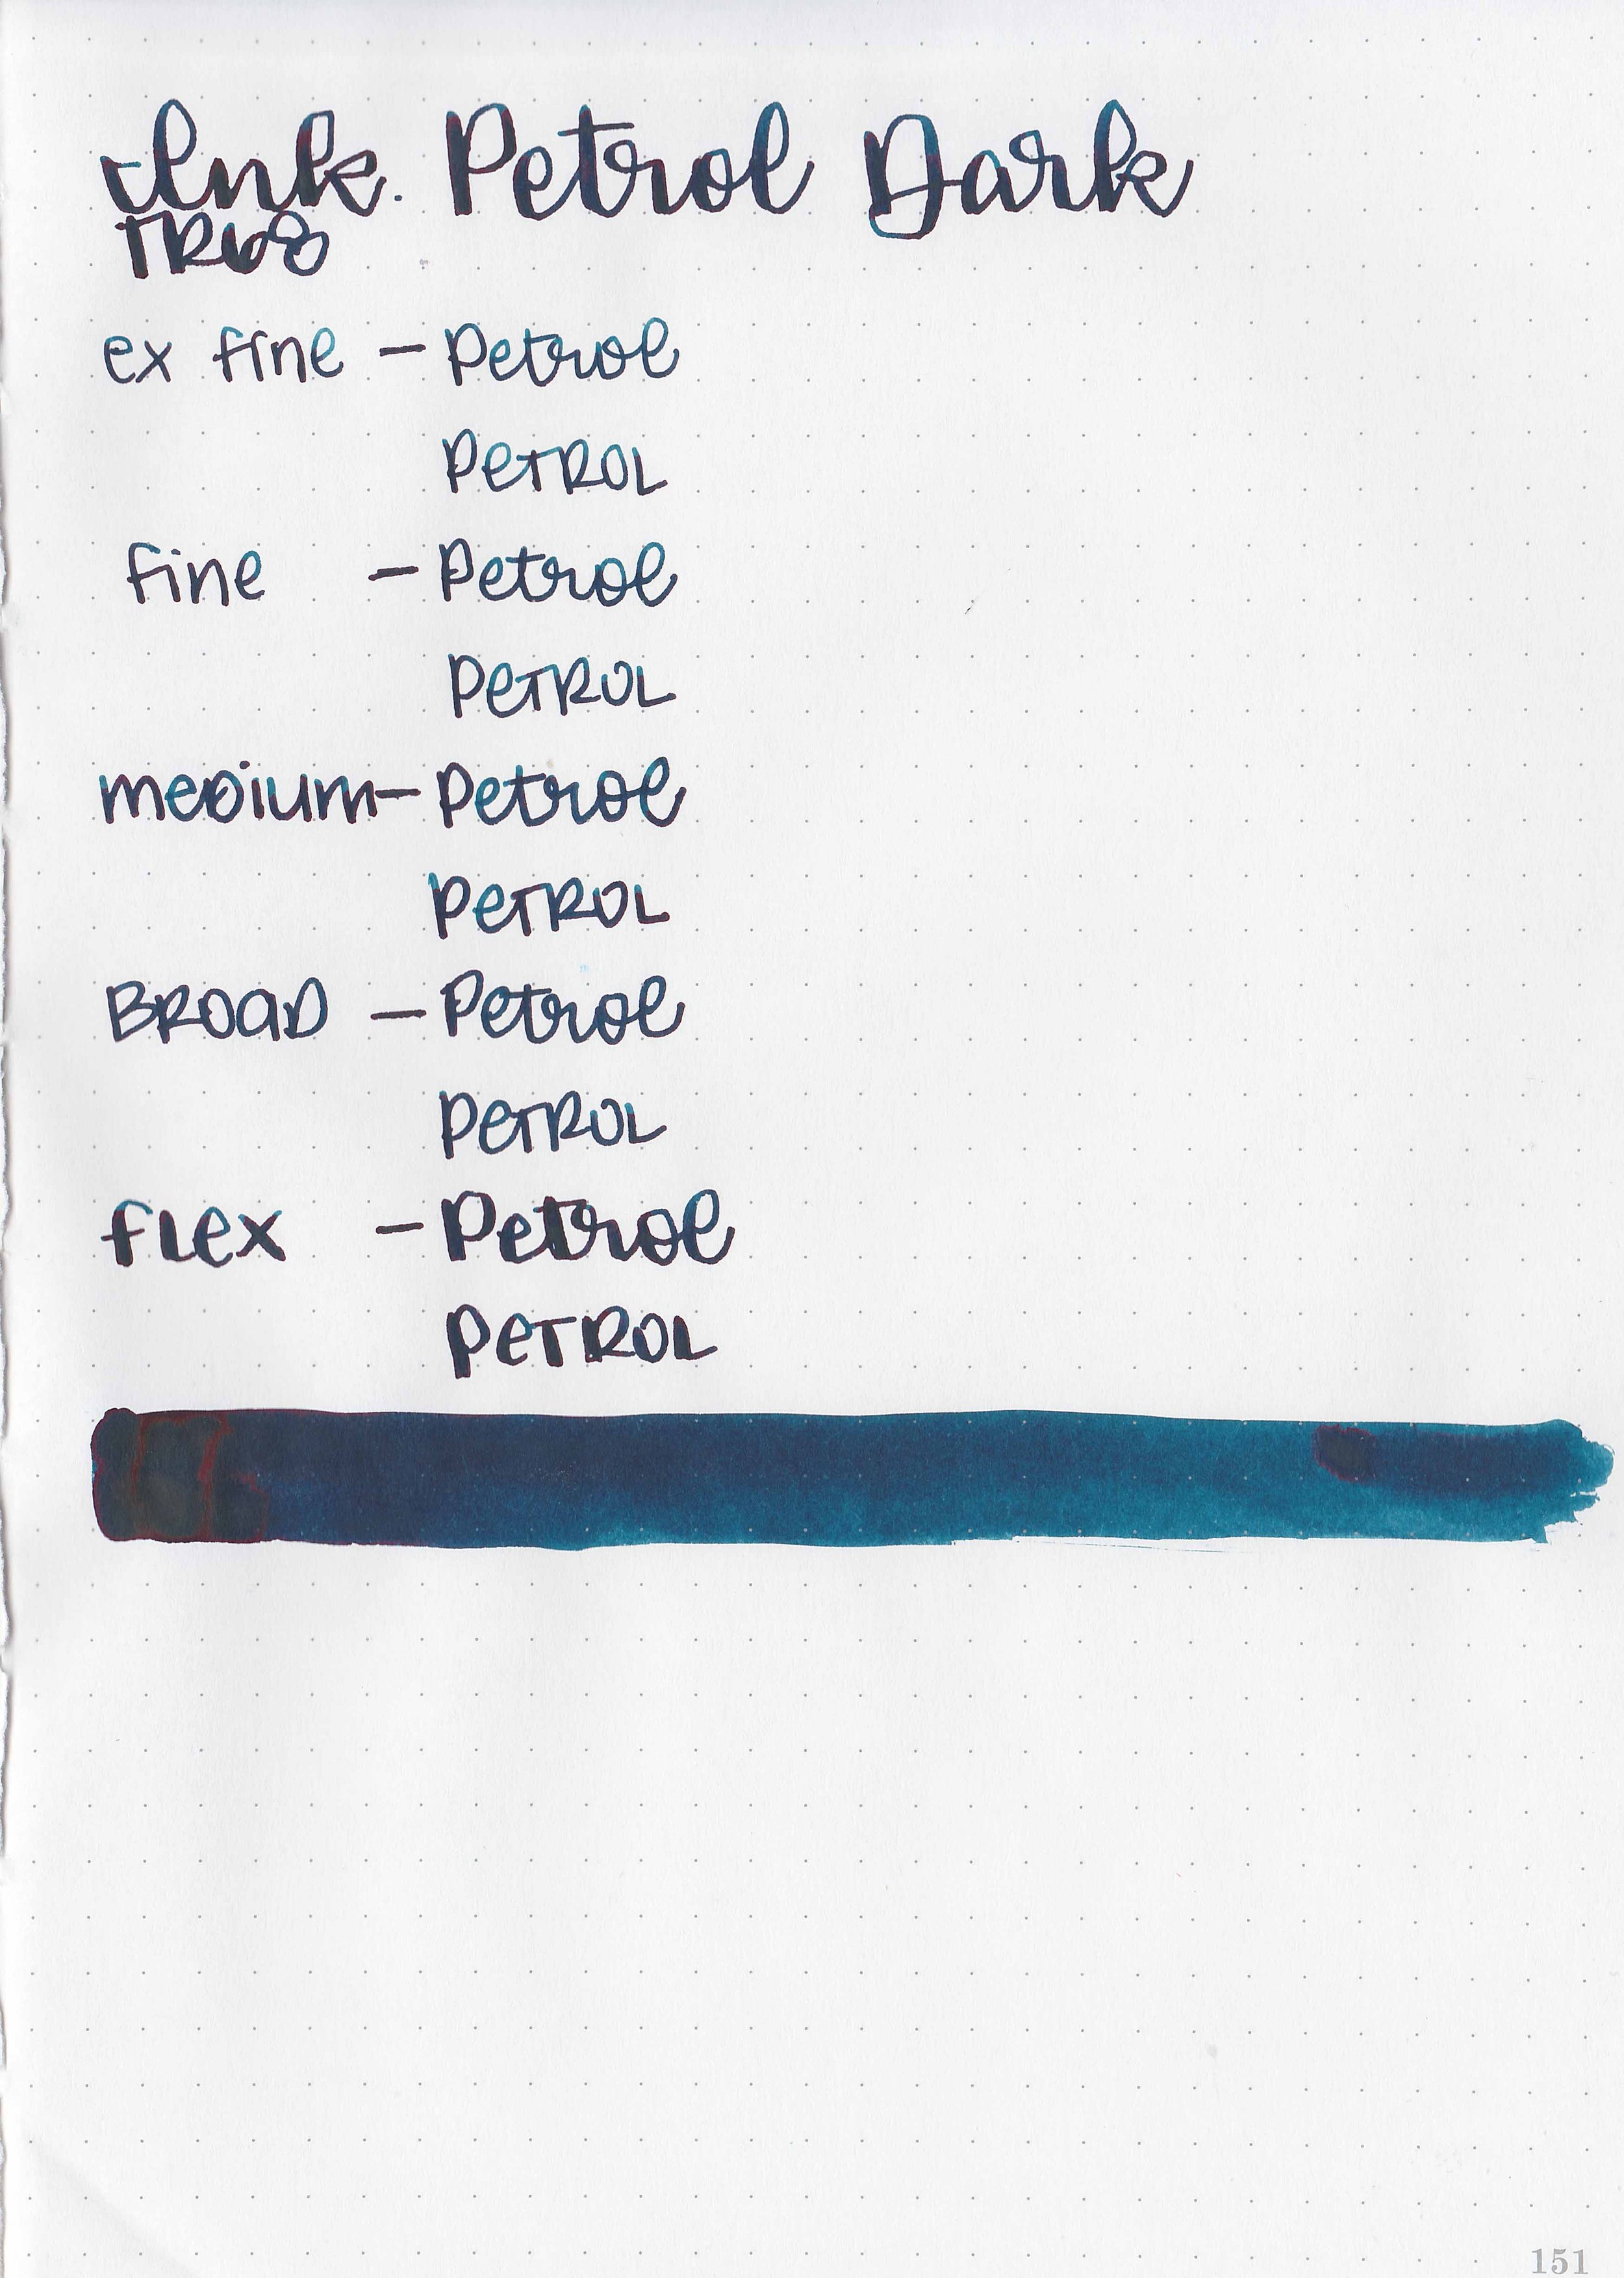 Ink. Petrol Dark
TR68
ex fine - Petrol
PETROL
fine - Petrol
PETROL
medium - Petrol
PETROL
BROAD - Petrol
PETROL
flex - Petrol
PETROL
151